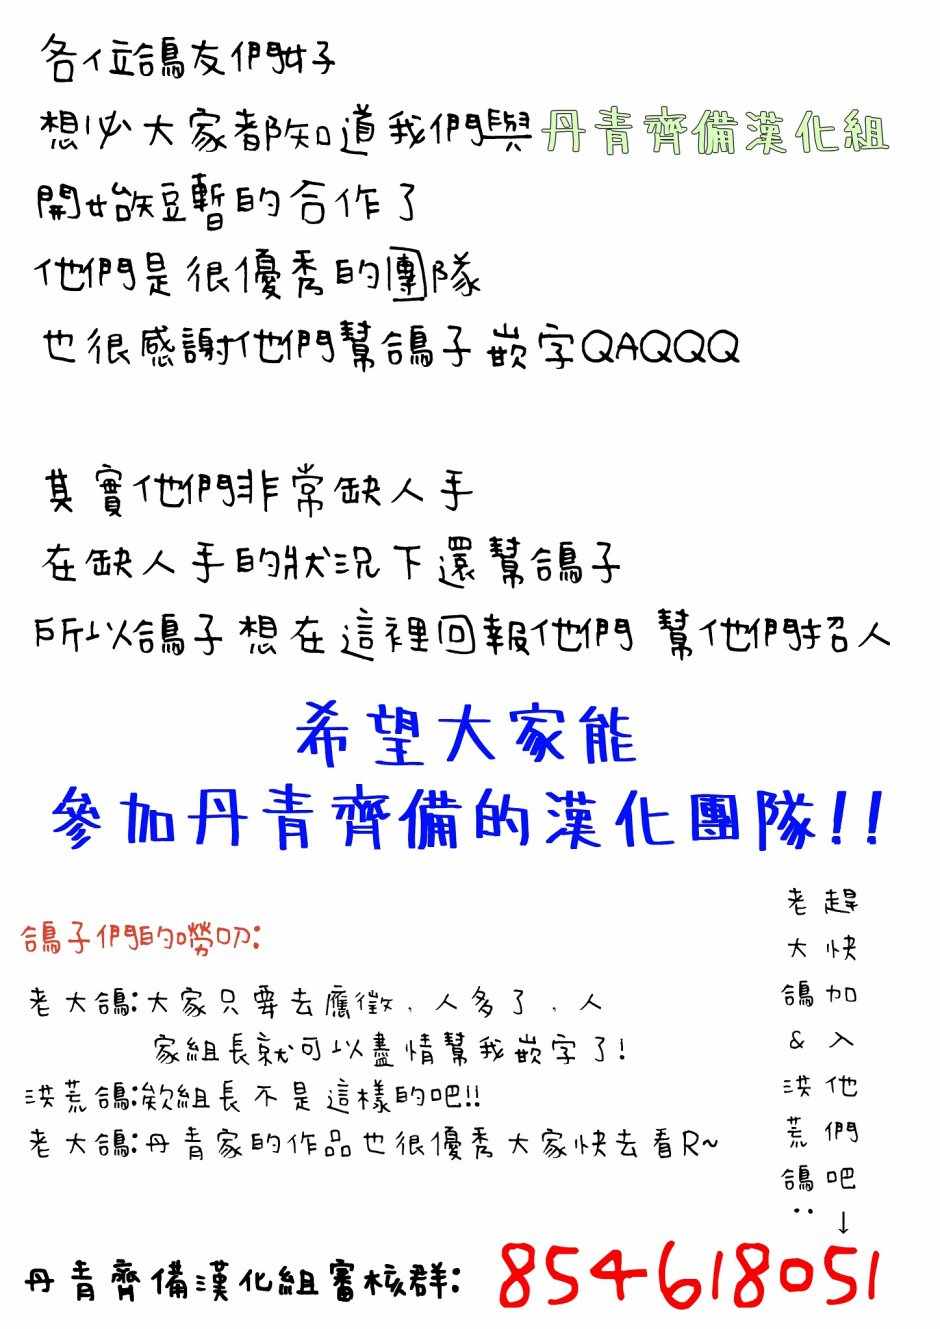 各位鴿友們好
想必大家都知道我們與丹青齊備漢化組
開始短暫的合作了
他們是很優秀的團隊
也很感謝他們幫鴿子嵌字QAQQQ
其實他們非常缺人手
在缺人手的狀況下還幫鴿子
所以鴿子想在這裡回報他們 幫他們招人
希望大家能
參加丹青齊備的漢化團隊!!
鴿子們的嘮叨:
老大鴿:大家只要去應徵,人多了,人
家組長就可以盡情幫我嵌字了!
洪荒鴿:欸組長不是這樣的吧!!
老大鴿:丹青家的作品也很優秀大家快去看R~
趕快加入他們吧↓
老大鴿&洪荒鴿:
丹青齊備漢化組審核群: 854618051